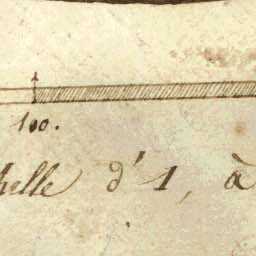 100.
helle d'1, à